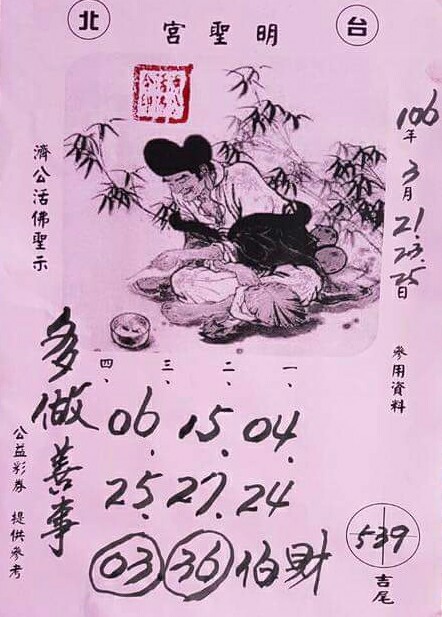 台北
明聖宮
106年3月21.23.25日
參用資料
濟公活佛聖示
一、二、三、四、
06. 15. 04.
25. 27. 24
03 36 伯財
多做善事
公益彩券 提供參考
539
吉尾